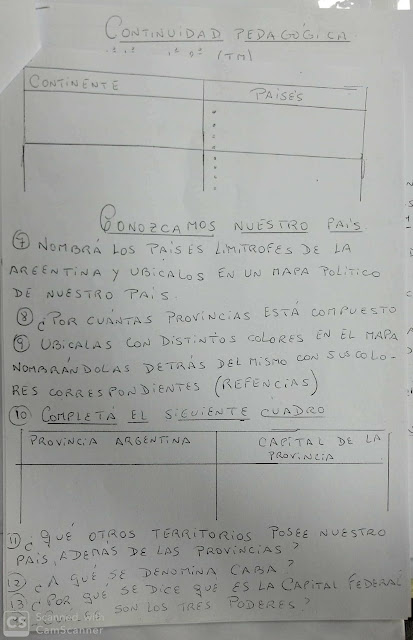 CONTINUIDAD PEDAGÓGICA
(TM)
CONTINENTE PAISES
CONOZCAMOS NUESTRO PAIS
7 NOMBRÁ LOS PAISES LIMITROFES DE LA
ARGENTINA Y UBICALOS EN UN MAPA POLITICO
DE NUESTRO PAIS.
8 ¿POR CUÁNTAS PROVINCIAS ESTÁ COMPUESTO
9 UBICALAS CON DISTINTOS COLORES EN EL MAPA
NOMBRÁNDOLAS DETRÁS DEL MISMO CON SUS COLO-
RES CORRESPONDIENTES (REFENCIAS)
10 COMPLETÁ EL SIGUIENTE CUADRO
PROVINCIA ARGENTINA CAPITAL DE LA
PROVINCIA
11 ¿QUÉ OTROS TERRITORIOS POSEE NUESTRO
PAIS, ADEMAS DE LAS PROVINCIAS?
12 ¿A QUÉ SE DENOMINA CABA?
13 ¿POR QUÉ SE DICE QUE ES LA CAPITAL FEDERAL
SON LOS TRES PODERES?
CS Scanned with
CamScanner